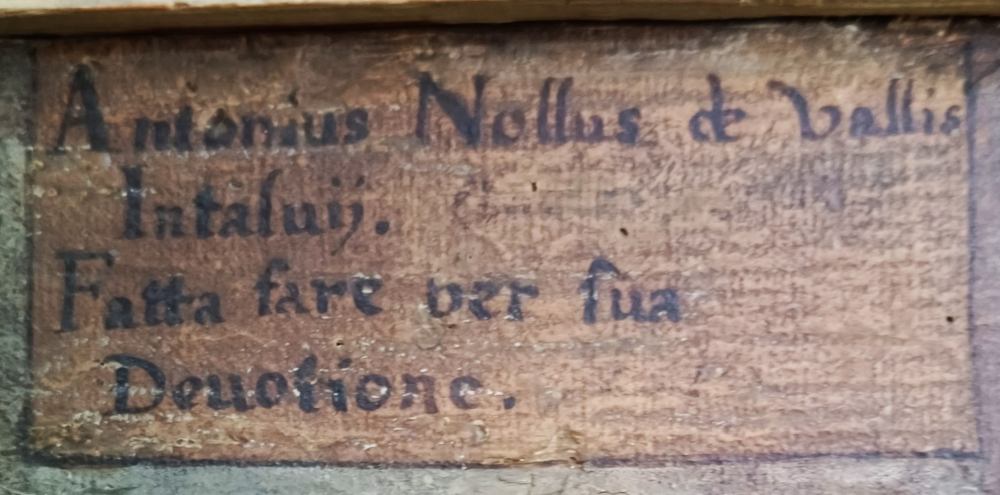 Antonius Nollus de Vallis
Intaluij.
Fatta fare per sua
Deuotione.